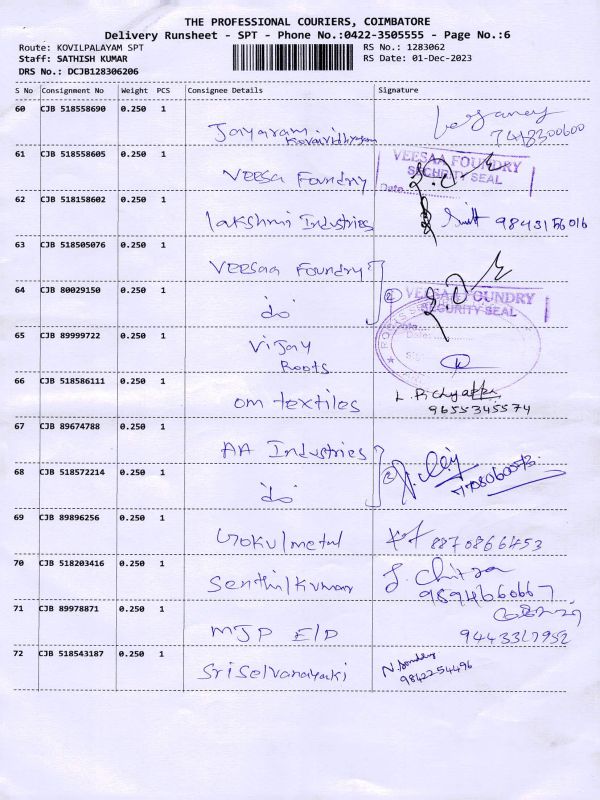 THE PROFESSIONAL COURIERS, COIMBATORE
Delivery Runsheet - SPT - Phone No.:0422-3505555 - Page No.:6
Route: KOVILPALAYAM SPT RS No.: 1283062
Staff: SATHISH KUMAR RS Date: 01-Dec-2023
DRS No.: DCJB128306206
S No Consignment No Weight PCS Consignee Details Signature
60 CJB 518558690 0.250 1
Jayaram
7418300600
61 CJB 518558605 0.250 1
VEESAA FOUNDRY
SECURITY SEAL
Date
Veesa Foundry
62 CJB 518158602 0.250 1
Lakshmi Industries
63 CJB 518505076 0.250 1
Veesaa Foundry
64 CJB 80029150 0.250 1
2
VEESAA FOUNDRY
SECURITY SEAL
do
65 CJB 89999722 0.250 1
Vijay
Roots
66 CJB 518586111 0.250 1
om textiles
9655345574
67 CJB 89674788 0.250 1
AA Industries
68 CJB 518572214 0.250 1
2
do
69 CJB 89896256 0.250 1
Gokul metal 8870866453
70 CJB 518203416 0.250 1
J. Chitra
Senthil Kumar 9894660667
71 CJB 89978871 0.250 1
MJP E/P
72 CJB 518543187 0.250 1
Sri Selvanayaki
9842254496